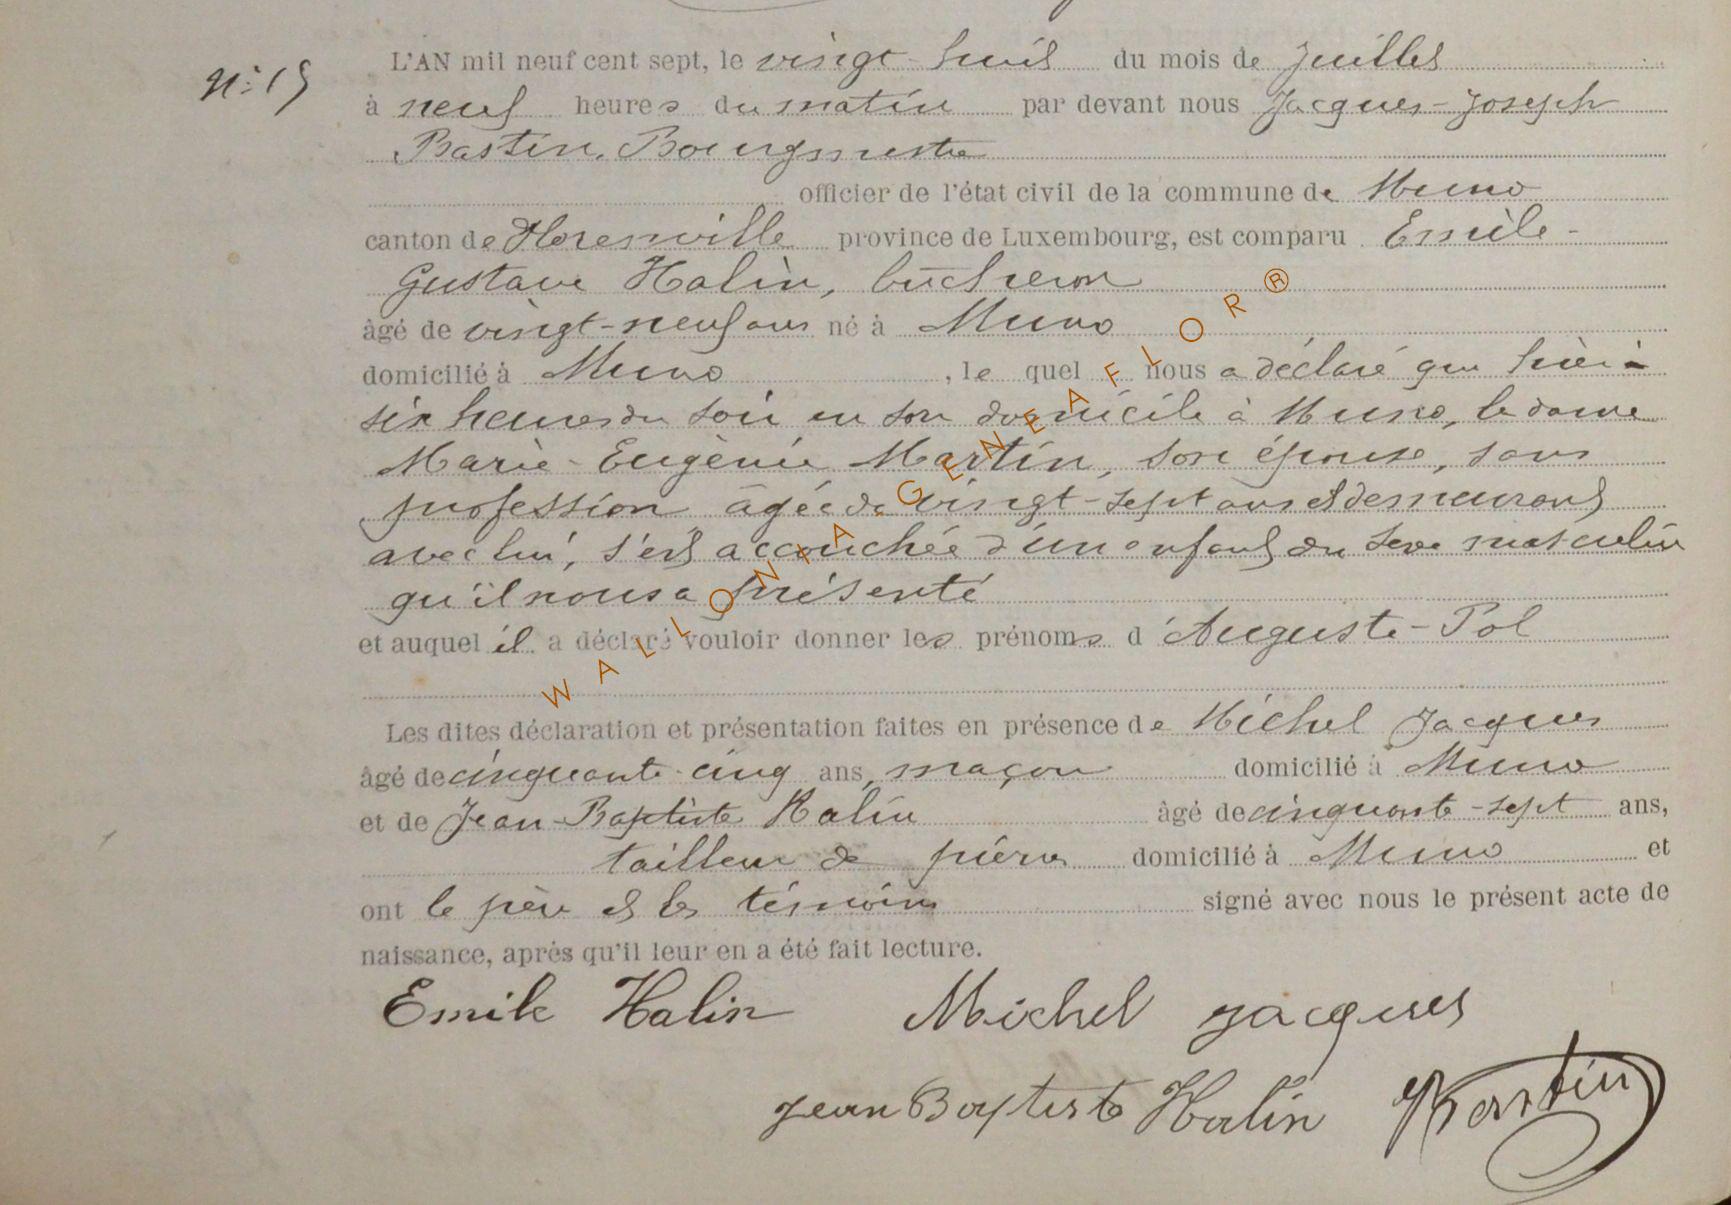 N° 15
L'AN mil neuf cent sept, le vingt-huit du mois de Juillet
à neuf heures du matin par devant nous Jacques-Joseph
Bastin, Bourgmestre
officier de l'état civil de la commune de Muno
canton de Florenville province de Luxembourg, est comparu Emile-
Gustave Halin, bûcheron
âgé de vingt-neuf ans né à Muno
domicilié à Muno , le quel nous a déclaré que hier à
six heures du soir en son domicile à Muno, la dame
Marie-Eugènie Martin, son épouse, sans
profession âgée de vingt-sept ans et demeurant
avec lui, s'est accouchée d'un enfant du sexe masculin
qu'il nous a présenté
et auquel il a déclaré vouloir donner les prénoms d'Auguste-Pol
Les dites déclaration et présentation faites en présence de Michel Jacques
âgé de cinquante-cinq ans, maçon domicilié à Muno
et de Jean-Baptiste Halin âgé de cinquante-sept ans,
tailleur de pierres domicilié à Muno et
ont le père et les témoins signé avec nous le présent acte de
naissance, après qu'il leur en a été fait lecture.
Emile Halin Michel Jacques
Jean Baptiste Halin JBastin
WALLONIA GENEAFLOR ®